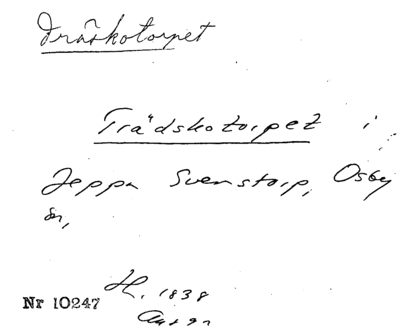 Träskotorpet
Trädskotorpet i
Jeppa Svenstorp, Osby
sn,
H. 1838
Nr 10247